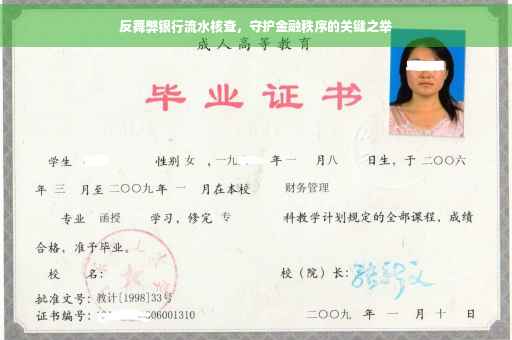 反舞弊银行流水核查，守护金融秩序的关键之举
成人高等教育
毕业证书
学生 性别 女 ，一九 年 一 月 八 日生，于 二〇〇六
年 三 月至 二〇〇九 年 一 月在本校 财务管理
专业 函授 学习，修完 专 科教学计划规定的全部课程，成绩
合格，准予毕业。
校 名： 校（院）长：
批准文号：教计[1998]33号
证书编号： 06001310 二〇〇九 年 一 月 十 日